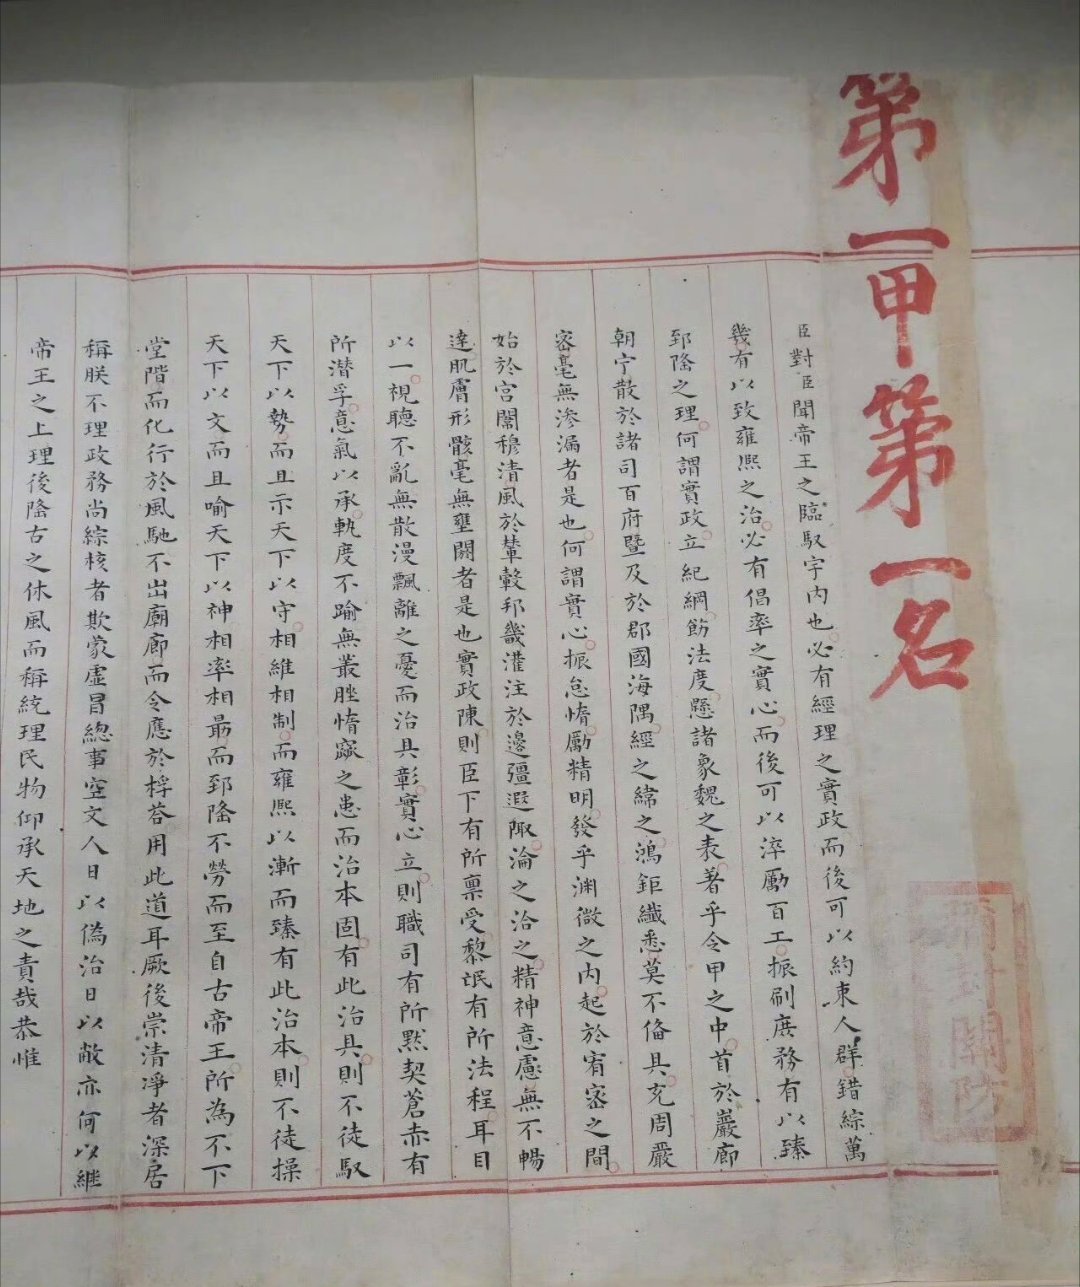 第一甲第一名
臣對臣聞帝王之臨馭宇内也必有經理之實政而後可以約束人群錯綜萬
幾有以致雍熙之治必有倡率之實心而後可以淬勵百工振刷庶務有以臻
郅隆之理何謂實政立紀綱飭法度懸諸象魏之表著乎令甲之中首於巖廊
朝宁散於諸司百府暨及於郡國海隅經之緯之鴻鉅纖悉莫不俻具充周嚴
密毫無渗漏者是也何謂實心振怠惰勵精明發乎渊微之内起於宥密之間
始於宫闈穆清風於輦轂邦畿灌注於邊疆遐陬淪之洽之精神意慮無不暢
達肌膚形骸毫無壅閼者是也實政陳則臣下有所禀受黎氓有所法程耳目
以一視聽不亂無散漫飄離之憂而治具彰實心立則職司有所默契蒼赤有
所潜孚意氣以承軌度不踰無叢脞惰窳之患而治本固有此治具則不徒馭
天下以勢而且示天下以守相維相制而雍熙以漸而臻有此治本則不徒操
天下以文而且喻天下以神相率相朂而郅隆不勞而至自古帝王所為不下
堂階而化行於風馳不出廟廊而令應於桴荅用此道耳厥後崇清淨者深居
稱朕不理政務尚綜核者欺蒙虚冒總事空文人日以偽治日以敝亦何以繼
帝王之上理後隆古之休風而稱統理民物仰承天地之責哉恭惟